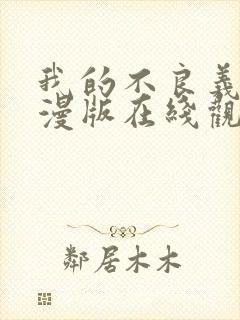 我的不良義
漫版在綫觀
鄰居木木